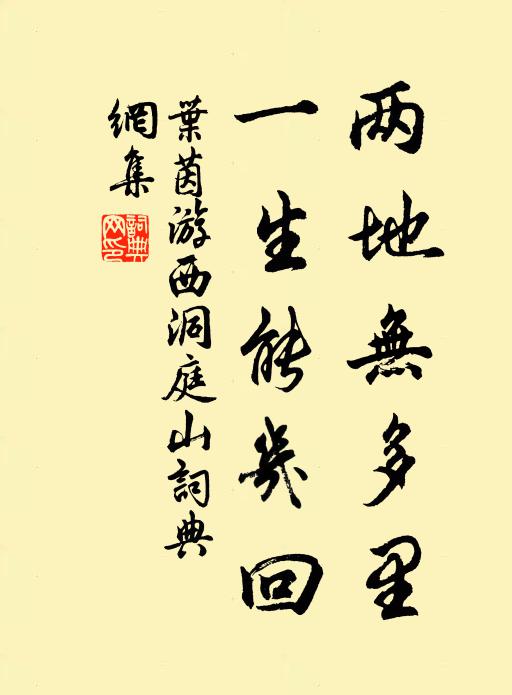 两地無多里
一生能幾回
葉茵游西洞庭山詞典
網集
詞典網印